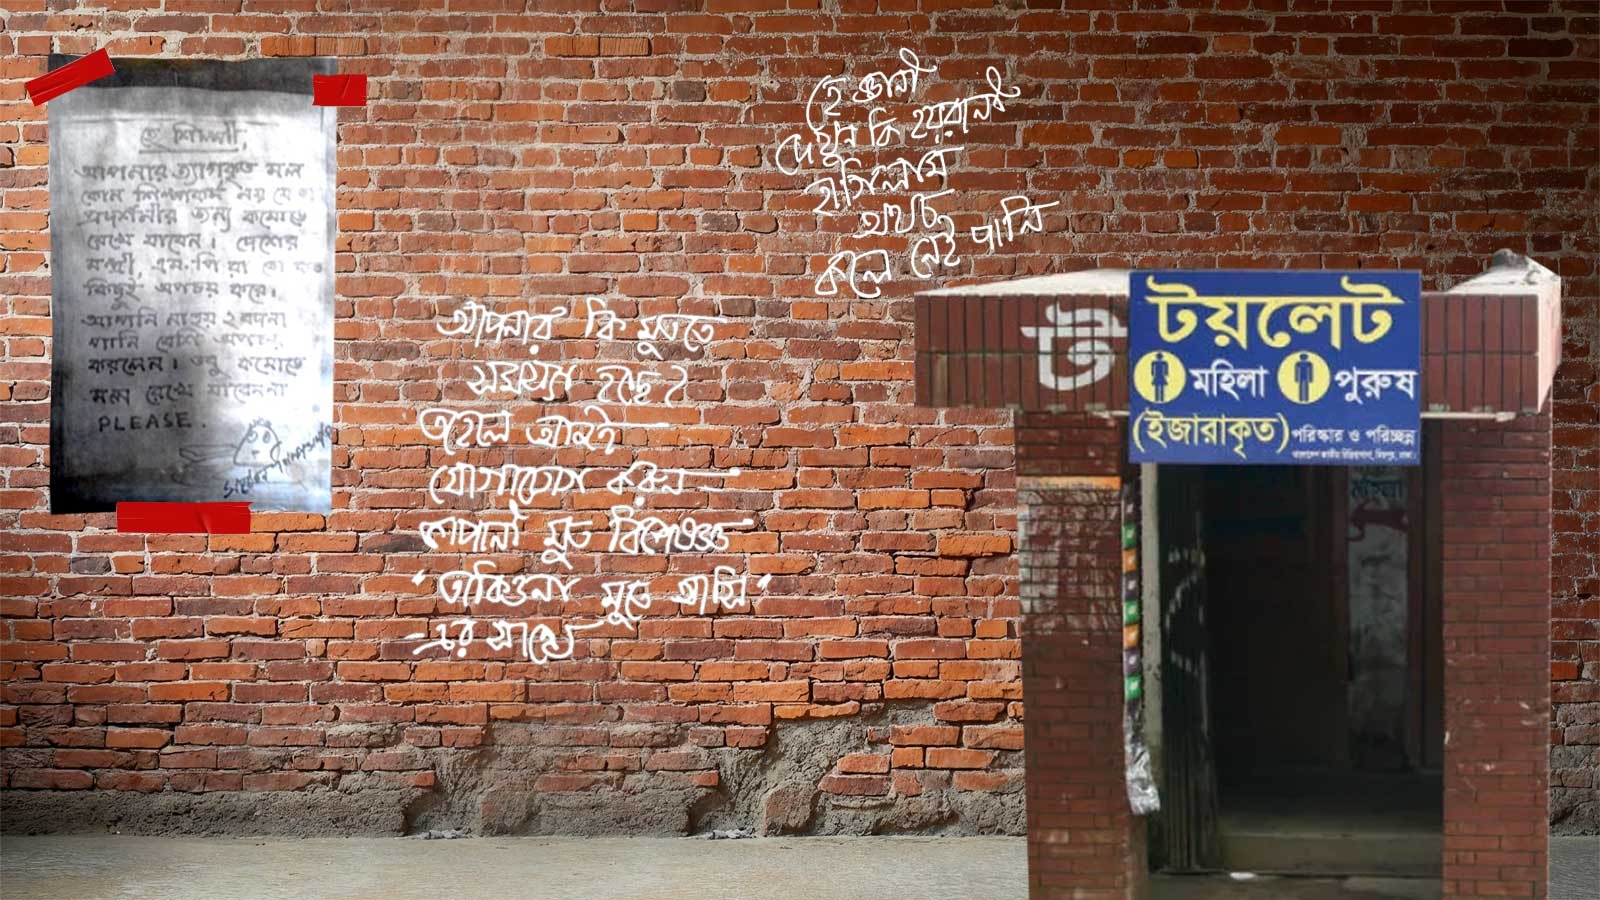 হে শিল্পী,
আপনার ত্যাগকৃত মল
কোন শিল্পকর্ম নয় যে তা
প্রদর্শনীর জন্য কমোডে
রেখে যাবেন। দেশের
মন্ত্রী, এম.পি রা তো কত
কিছুই অপচয় করে।
আপনি না হয় ২ বদনা
পানি বেশি অপচয়
করলেন। তবু কমোডে
মল রেখে যাবেননা
PLEASE.
হে জ্ঞানী
দেখুন কি হয়রানী
হাগিলাম
অথচ
কলে নেই পানি
আপনার কি মুততে
সমস্যা হচ্ছে?
তাহলে আজই
যোগাযোগ করুন
জাপানী মুত বিশেষজ্ঞ
"তাকিওনা মুতে আসি"
-এর সাথে
ট
টয়লেট
মহিলা পুরুষ
(ইজারাকৃত) পরিস্কার ও পরিচ্ছন্ন
বাংলাদেশ জাতীয় চিড়িয়াখানা, মিরপুর, ঢাকা।
মহিলা